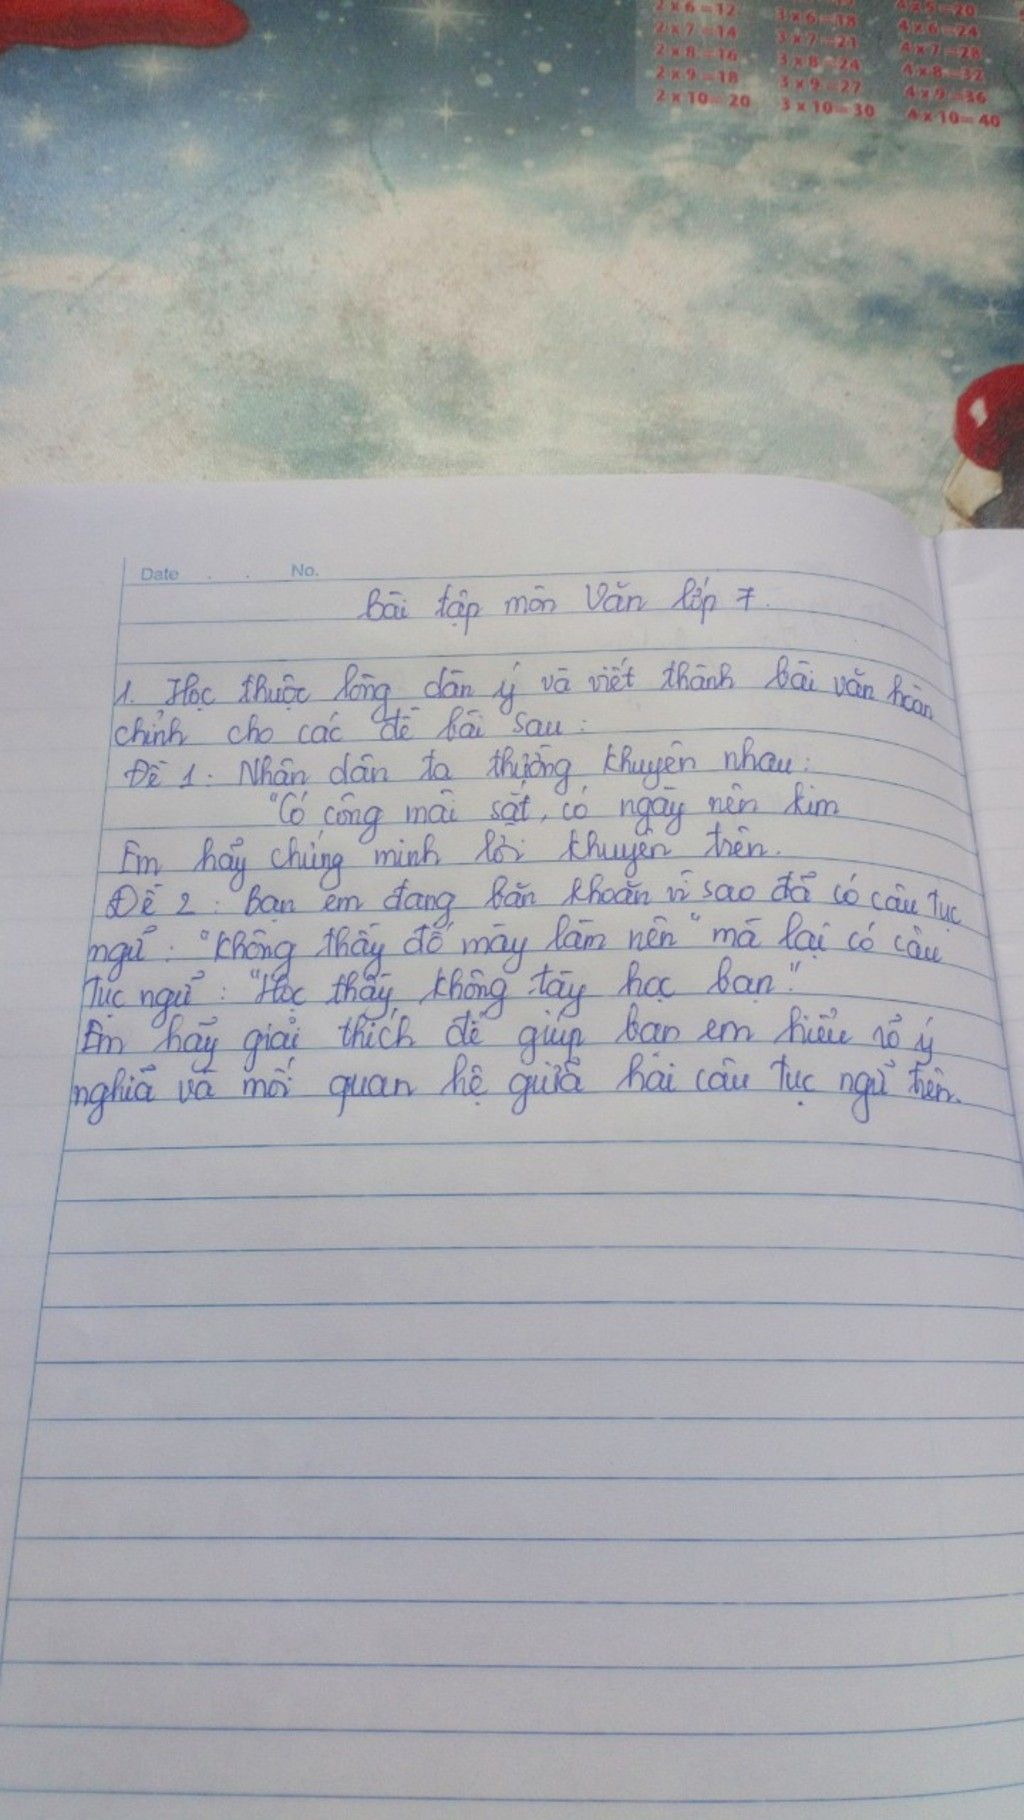 2 x 6 = 12 3 x 6 = 18 4 x 5 = 20
2 x 7 = 14 3 x 7 = 21 4 x 6 = 24
2 x 8 = 16 3 x 8 = 24 4 x 7 = 28
2 x 9 = 18 3 x 9 = 27 4 x 8 = 32
2 x 10 = 20 3 x 10 = 30 4 x 9 = 36
4 x 10 = 40
Date . . No.
Bài tập môn Văn lớp 7.
1. Học thuộc lòng dàn ý và viết thành bài văn hoàn
chỉnh cho các đề bài sau:
Đề 1: Nhân dân ta thường khuyên nhau:
"Có công mài sắt, có ngày nên kim
Em hãy chứng minh lời khuyên trên.
Đề 2: Bạn em đang băn khoăn vì sao đã có câu tục
ngữ: "Không thầy đố mày làm nên" mà lại có câu
tục ngữ: "Học thầy không tày học bạn."
Em hãy giải thích để giúp bạn em hiểu rõ ý
nghĩa và mối quan hệ giữa hai câu tục ngữ trên.